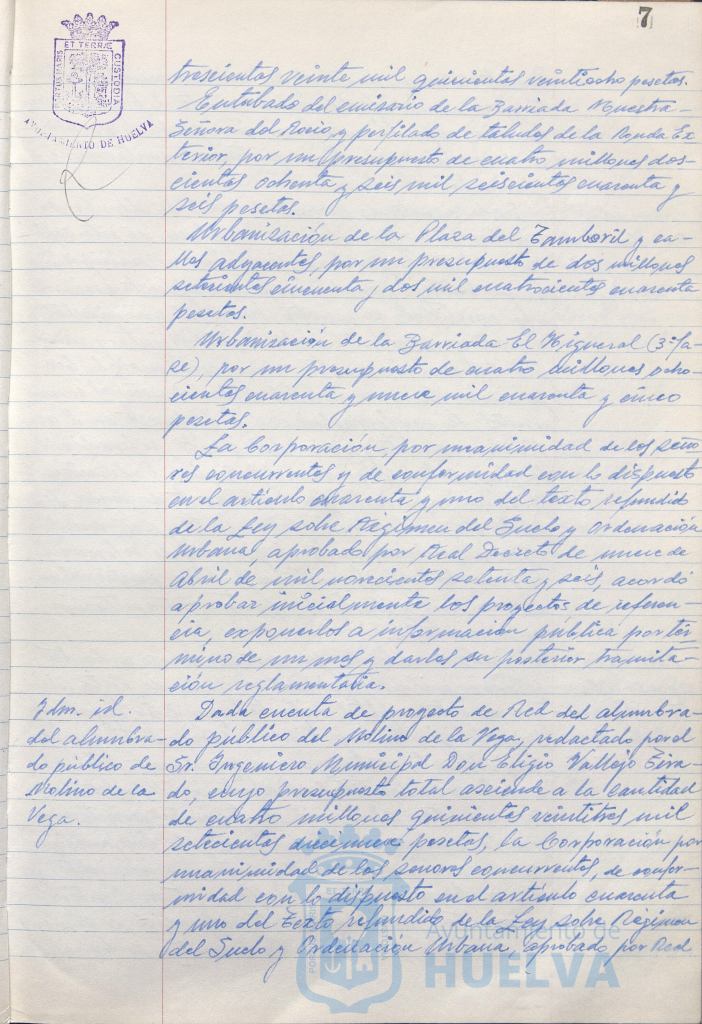 7
PORTUS MARIS
ET TERRÆ
CUSTODIA
AYUNTAMIENTO DE HUELVA
trescientas veinte mil quinientas veintiocho pesetas.
Entubado del emisario de la Barriada Nuestra
Señora del Rocío y perfilado de taludes de la Ronda Ex-
terior, por un presupuesto de cuatro millones dos-
cientas ochenta y seis mil seiscientas cuarenta y
seis pesetas.
Urbanización de la Plaza del Tamboril y ca-
lles adyacentes, por un presupuesto de dos millones
setecientas cincuenta y dos mil cuatrocientas cuarenta
pesetas.
Urbanización de la Barriada El Higueral (3ª fa-
se), por un presupuesto de cuatro millones ocho-
cientas cuarenta y nueve mil cuarenta y cinco
pesetas.
La Corporación, por unanimidad de los seño-
res concurrentes y de conformidad con lo dispuesto
en el artículo cuarenta y uno del texto refundido
de la Ley sobre Régimen del Suelo y Ordenación
Urbana, aprobado por Real Decreto de nueve de
Abril de mil novecientos setenta y seis, acordó
aprobar inicialmente los proyectos de referen-
cia, exponerlos a información pública por tér-
mino de un mes y darles su posterior tramita-
ción reglamentaria.
Idm. id.
del alumbra-
do público de
Molino de la
Vega.
Dada cuenta de proyecto de Red del alumbra-
do público del Molino de la Vega, redactado por el
Sr. Ingeniero Municipal Don Eligio Vallejo Tira-
do, cuyo presupuesto total asciende a la cantidad
de cuatro millones quinientas veintitres mil
setecientas diecinueve pesetas, la Corporación por
unanimidad de los señores concurrentes, de confor-
midad con lo dispuesto en el artículo cuarenta
y uno del Texto refundido de la Ley sobre Régimen
del Suelo y Ordenación Urbana, aprobado por Real
Ayuntamiento de
HUELVA